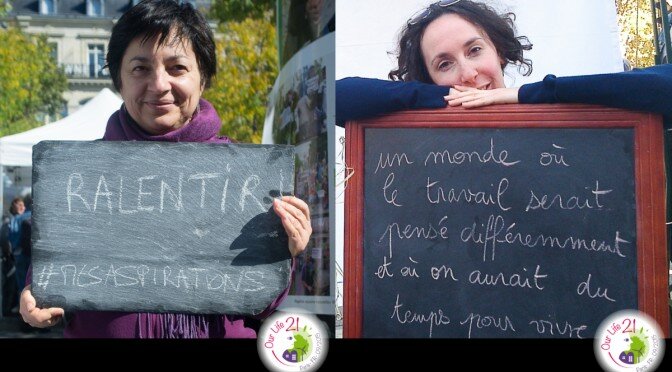 RALENTIR
#MESASPIRATIONS
un monde où
le travail serait
pensé différemment
et où on aurait du
temps pour vivre
Our Life 21
Our Life 21